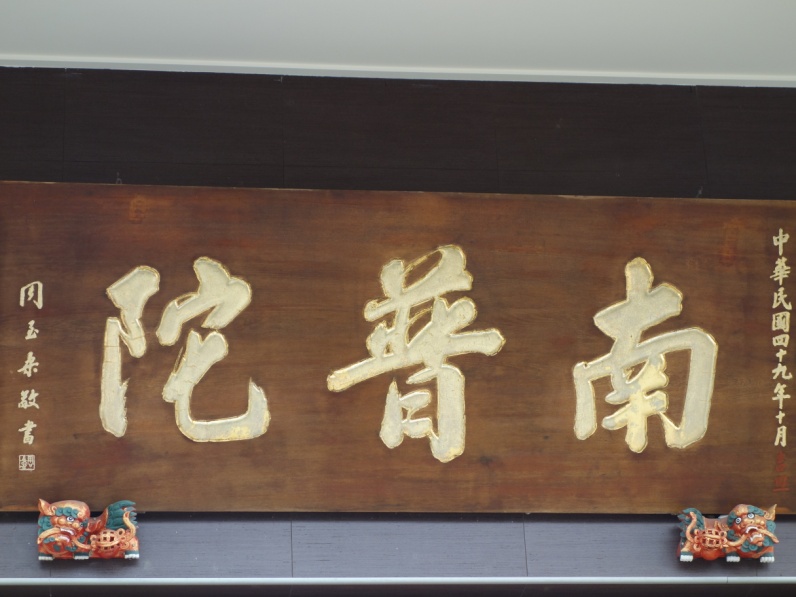 中華民國四十九年十月
南普陀
周玉桑敬書